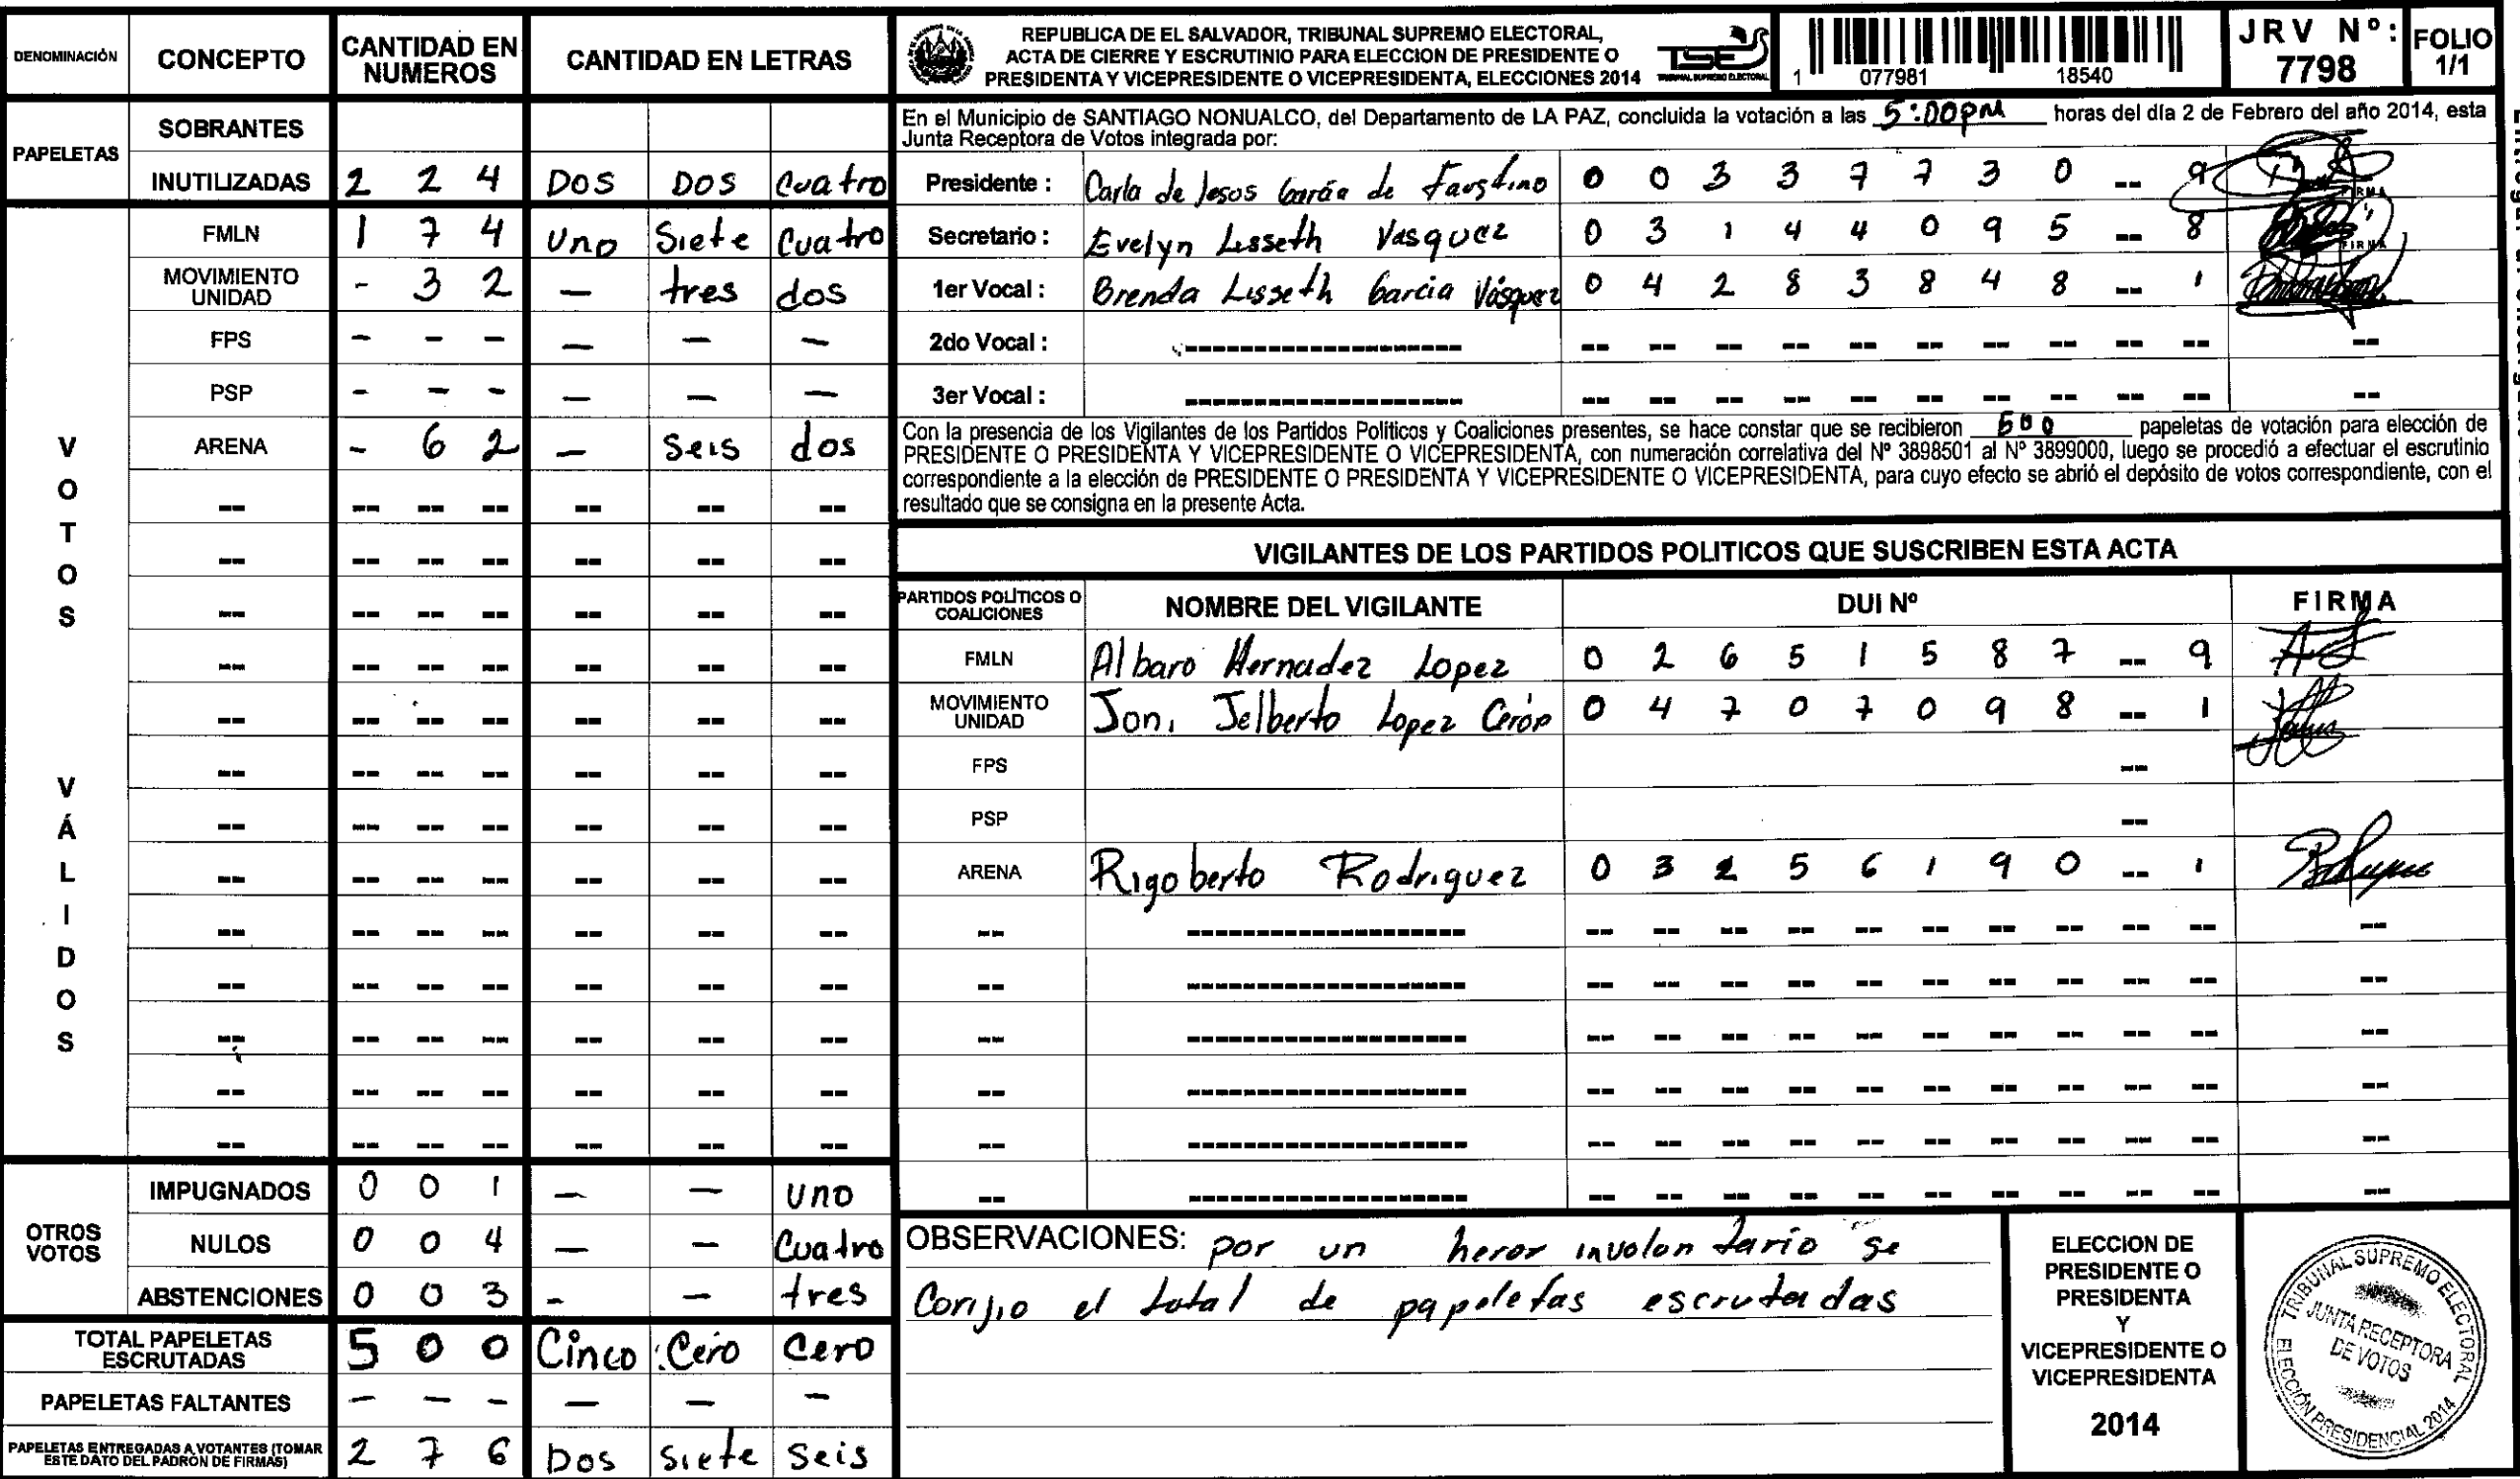 DENOMINACIÓN CONCEPTO CANTIDAD EN NUMEROS CANTIDAD EN LETRAS
PAPELETAS
SOBRANTES
INUTILIZADAS 2 2 4 DOS DOS Cuatro
VOTOS VÁLIDOS
FMLN 1 7 4 Uno Siete Cuatro
MOVIMIENTO UNIDAD - 3 2 — tres dos
FPS - - - — — —
PSP - - - — — —
ARENA - 6 2 — Seis dos
-- -- -- -- -- -- --
-- -- -- -- -- -- --
-- -- -- -- -- -- --
-- -- -- -- -- -- --
-- -- -- -- -- -- --
-- -- -- -- -- -- --
-- -- -- -- -- -- --
-- -- -- -- -- -- --
-- -- -- -- -- -- --
-- -- -- -- -- -- --
-- -- -- -- -- -- --
-- -- -- -- -- -- --
-- -- -- -- -- -- --
OTROS VOTOS
IMPUGNADOS 0 0 1 — — uno
NULOS 0 0 4 — — Cuatro
ABSTENCIONES 0 0 3 - — tres
TOTAL PAPELETAS ESCRUTADAS 5 0 0 Cinco Cero Cero
PAPELETAS FALTANTES — — - — — —
PAPELETAS ENTREGADAS A VOTANTES (TOMAR ESTE DATO DEL PADRON DE FIRMAS) 2 7 6 Dos Siete Seis
REPUBLICA DE EL SALVADOR, TRIBUNAL SUPREMO ELECTORAL,
ACTA DE CIERRE Y ESCRUTINIO PARA ELECCION DE PRESIDENTE O
PRESIDENTA Y VICEPRESIDENTE O VICEPRESIDENTA, ELECCIONES 2014
TSE
TRIBUNAL SUPREMO ELECTORAL
1 077981 18540
JRV Nº: 7798
FOLIO 1/1
En el Municipio de SANTIAGO NONUALCO, del Departamento de LA PAZ, concluida la votación a las 5:00pm horas del día 2 de Febrero del año 2014, esta
Junta Receptora de Votos integrada por:
Presidente : Carla de Jesus García de Faustino 0 0 3 3 7 7 3 0 -- 9
Secretario : Evelyn Lisseth Vasquez 0 3 1 4 4 0 9 5 -- 8
1er Vocal : Brenda Lisseth Garcia Vásquez 0 4 2 8 3 8 4 8 -- 1
2do Vocal : -------------------- -- -- -- -- -- -- -- -- -- -- --
3er Vocal : -------------------- -- -- -- -- -- -- -- -- -- -- --
Con la presencia de los Vigilantes de los Partidos Políticos y Coaliciones presentes, se hace constar que se recibieron 500 papeletas de votación para elección de
PRESIDENTE O PRESIDENTA Y VICEPRESIDENTE O VICEPRESIDENTA, con numeración correlativa del Nº 3898501 al Nº 3899000, luego se procedió a efectuar el escrutinio
correspondiente a la elección de PRESIDENTE O PRESIDENTA Y VICEPRESIDENTE O VICEPRESIDENTA, para cuyo efecto se abrió el depósito de votos correspondiente, con el
resultado que se consigna en la presente Acta.
VIGILANTES DE LOS PARTIDOS POLITICOS QUE SUSCRIBEN ESTA ACTA
PARTIDOS POLÍTICOS O COALICIONES NOMBRE DEL VIGILANTE DUI Nº FIRMA
FMLN Albaro Hernadez Lopez 0 2 6 5 1 5 8 7 -- 9
MOVIMIENTO UNIDAD Joni Jelberto Lopez Cerón 0 4 7 0 7 0 9 8 -- 1
FPS --
PSP --
ARENA Rigoberto Rodriguez 0 3 2 5 6 1 9 0 -- 1
-- -------------------- -- -- -- -- -- -- -- -- -- -- --
-- -------------------- -- -- -- -- -- -- -- -- -- -- --
-- -------------------- -- -- -- -- -- -- -- -- -- -- --
-- -------------------- -- -- -- -- -- -- -- -- -- -- --
-- -------------------- -- -- -- -- -- -- -- -- -- -- --
-- -------------------- -- -- -- -- -- -- -- -- -- -- --
OBSERVACIONES: por un heror involontario se
Corijio el total de papeletas escrutadas
ELECCION DE
PRESIDENTE O
PRESIDENTA
Y
VICEPRESIDENTE O
VICEPRESIDENTA
2014
TRIBUNAL SUPREMO ELECTORAL
JUNTA RECEPTORA
DE VOTOS
ELECCIÓN PRESIDENCIAL 2014